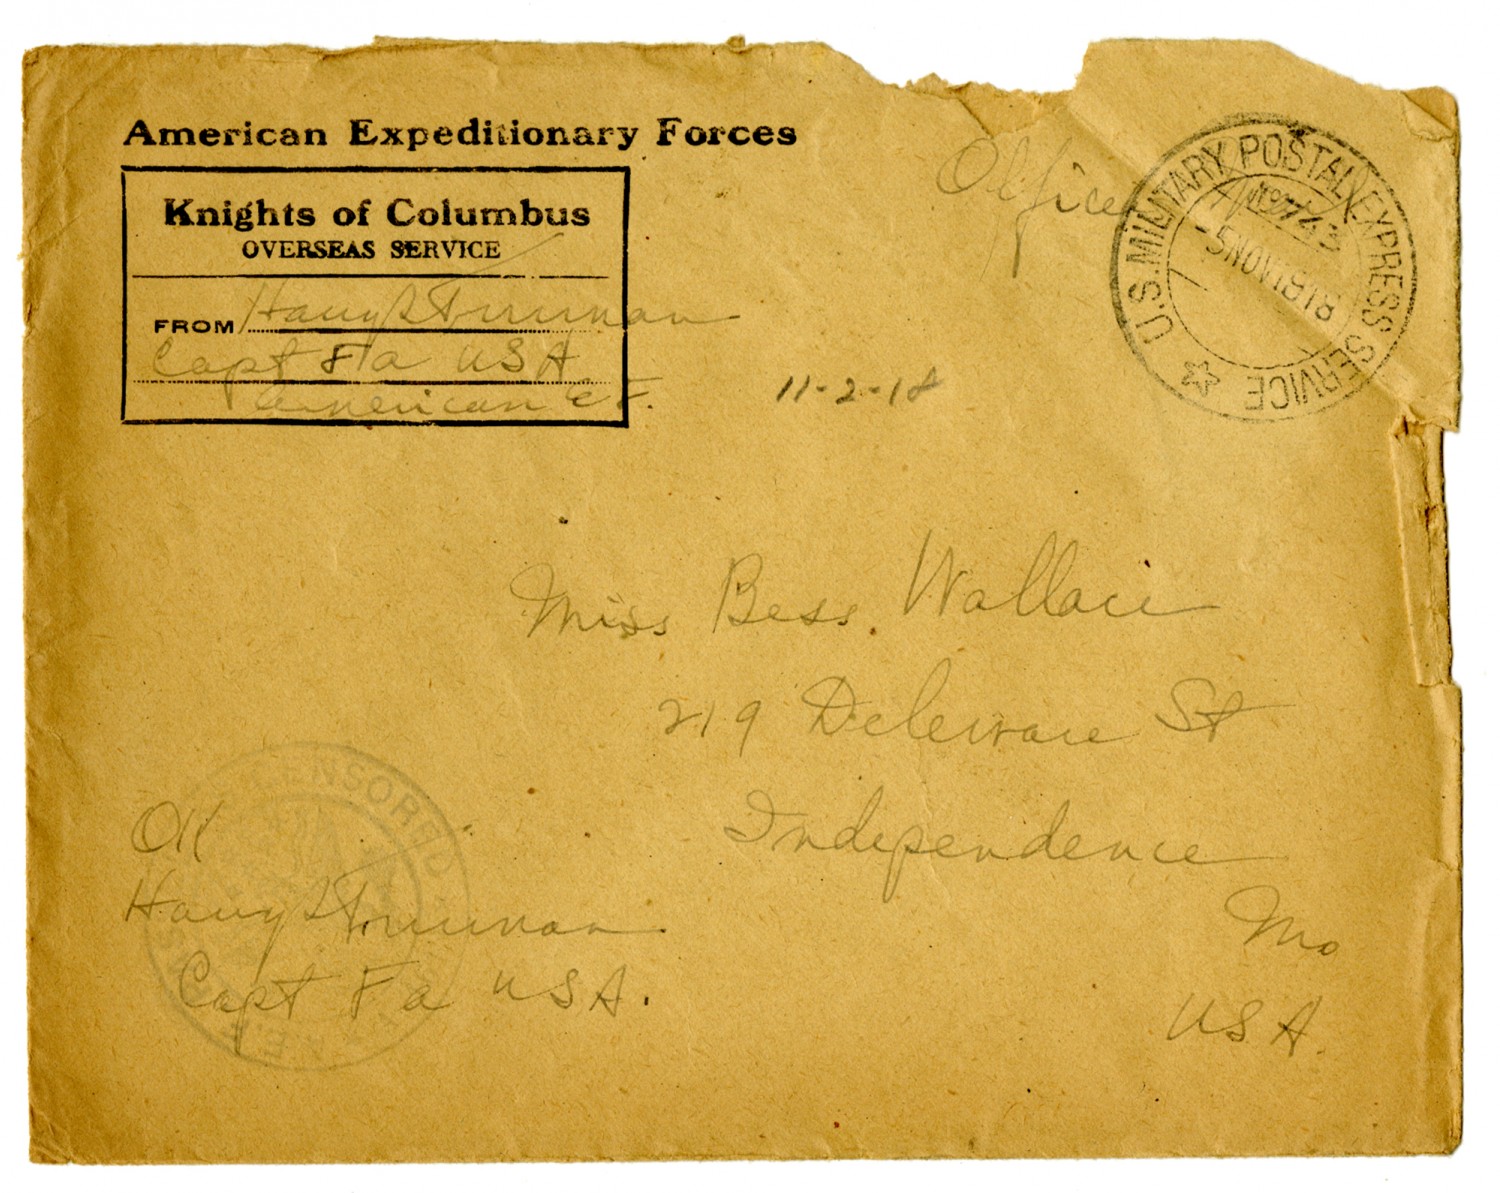 American Expeditionary Forces
Knights of Columbus
OVERSEAS SERVICE
FROM Harry S Truman
Capt F a USA
American E F.
Officer
U.S. MILITARY POSTAL EXPRESS SERVICE
No 743
-5NOV1918
11-2-18
Miss Bess Wallace
219 Deleware St
Independence
Mo
USA.
OK
Harry S Truman
Capt F a USA.
CENSORED
A.E.F.